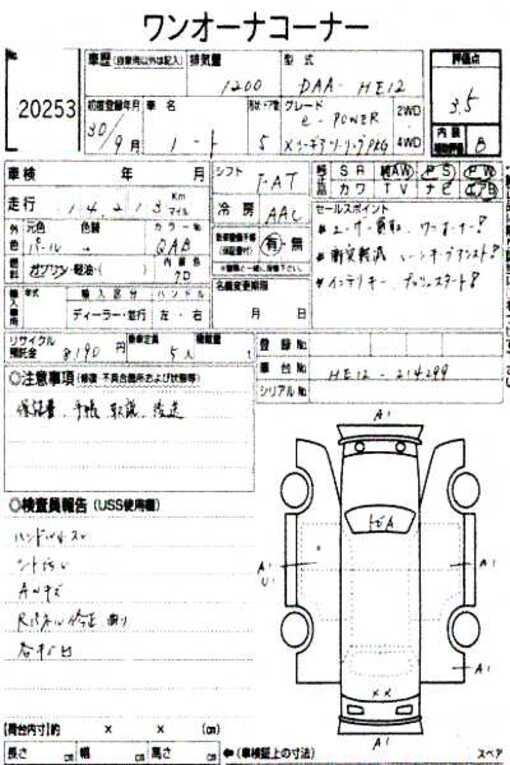 ワンオーナーコーナー
No
20253
車歴 (自家用以外は記入) 排気量 1200 型式 DAA-HE12
評価点 3.5
初度登録年月 30/9月 車名 ノート 形状・ドア数 5 グレード e-POWER 2WD・4WD
内装 B
車検 年 月
シフト FAT
SR AW PS PW
カワ TV ナビ エアB
走行 14,213 Km マイル
冷房 AAC
セールスポイント
* ユーザー買取、ワンオーナー!
外色 元色 パール 色替 カラーNo QAB
(保証書付) 有・無
燃料 ガソリン・軽油・( ) 内装色
名義変更期限
月 日
* インテリキー、プッシュスタート!
輸入車用 年式 輸入区分 ハンドル
ディーラー・並行 左・右
リサイクル預託金 8,190 円 乗車定員 5人 積載量 t
登録No
車台No HE12-214299
シリアルNo
◎注意事項 (修復・不具合箇所および状態等)
保証書、手帳、取説、後送
◎検査員報告 (USS使用欄)
ハンドルスレ
シート汚れ
AWキズ
Rパネル修正有り
A1
A1
U1
A1
A1
××
A1
【荷台内寸】約 × × (cm)
長さ cm 幅 cm 高さ cm ←(車検証上の寸法)
スペア